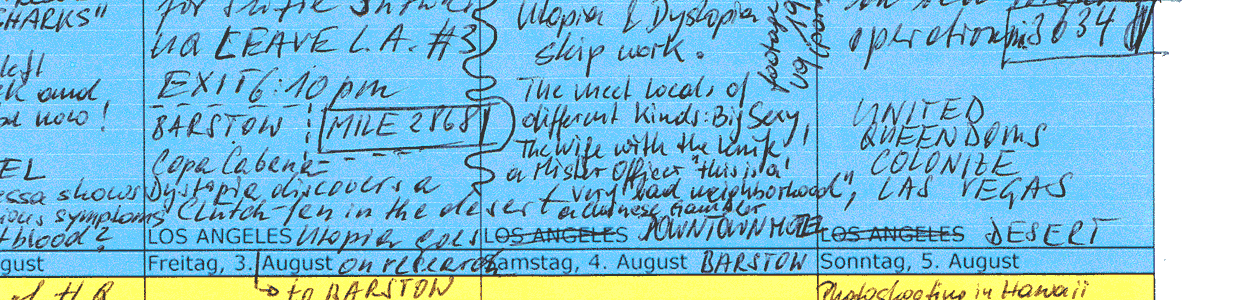 CHARKS"
left
and
now!
EL
essa shows
symptoms
blood?
gust
via LEAVE L.A. #3
EXIT 6:10 pm
BARSTOW MILE 2868
Copa Cabana
Dystopia discovers a
Clutch-fen in the desert
LOS ANGELES Utopia goes
Freitag, 3. August on research
to BARSTOW
Utopia & Dystopia
skip work.
footage
The meet locals of
different Kinds: Big Sexy,
The Wife with the Knife,
a Mister Officer "this is a
very bad neighborhood",
a chinese Gambler
LOS ANGELES DOWNTOWN MOTEL
Samstag, 4. August BARSTOW
operation
3634
UNITED
QUEENDOMS
COLONIZE
LAS VEGAS
LOS ANGELES DESERT
Sonntag, 5. August
Photoshooting in Hawaii